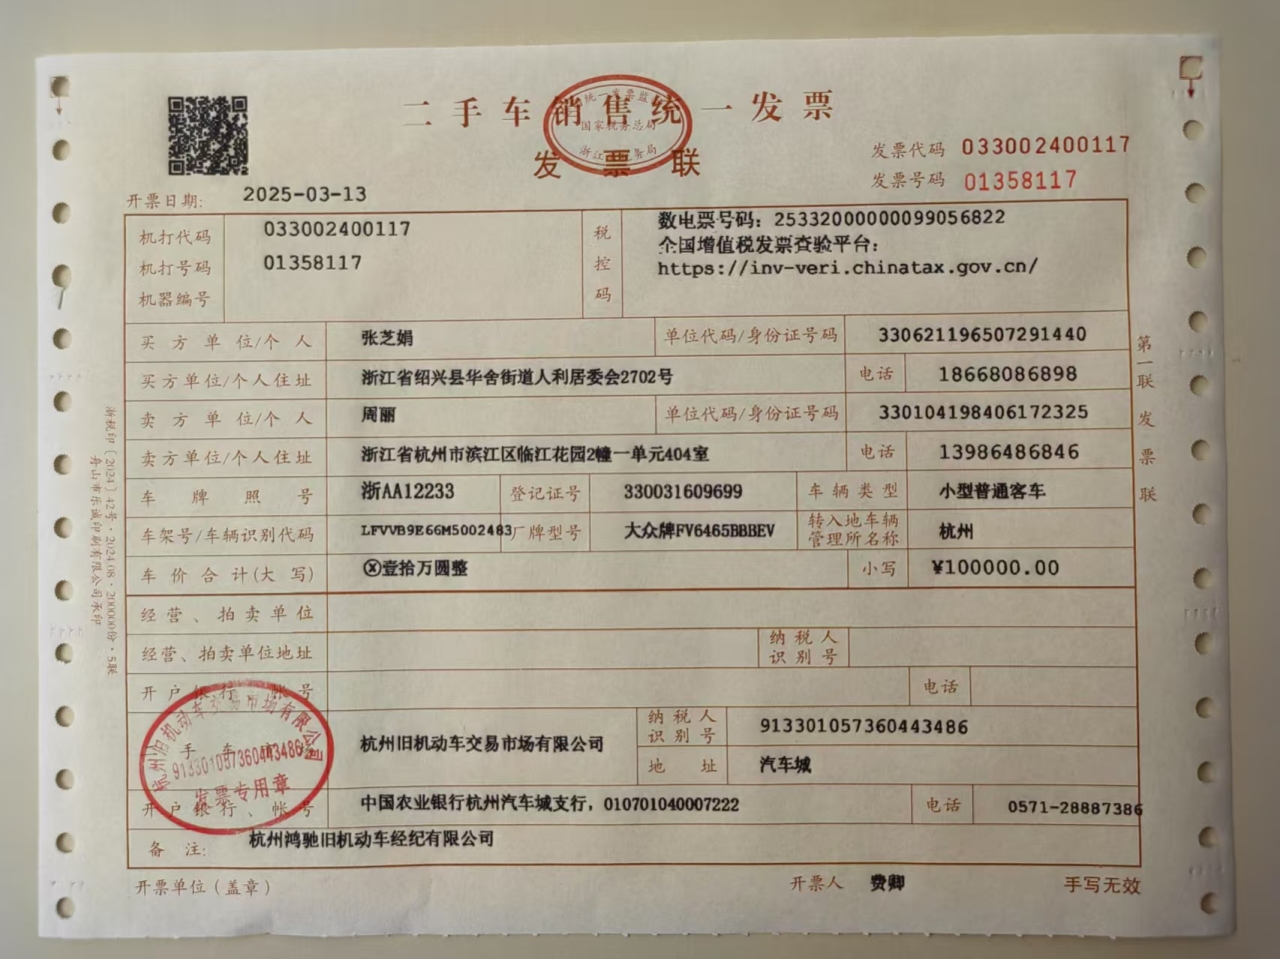 二手车销售统一发票
发票联
国家税务总局
发票代码 033002400117
发票号码 01358117
开票日期: 2025-03-13
机打代码 033002400117
机打号码 01358117
机器编号
税控码
数电票号码：25332000000099056822
全国增值税发票查验平台：
https://inv-veri.chinatax.gov.cn/
买方单位/个人 张芝娟 单位代码/身份证号码 330621196507291440
买方单位/个人住址 浙江省绍兴县华舍街道人利居委会2702号 电话 18668086898
卖方单位/个人 周丽 单位代码/身份证号码 330104198406172325
卖方单位/个人住址 浙江省杭州市滨江区临江花园2幢一单元404室 电话 13986486846
车牌照号 浙AA12233 登记证号 330031609699 车辆类型 小型普通客车
车架号/车辆识别代码 LFVVB9E66M5002483 厂牌型号 大众牌FV6465BBBEV 转入地车辆管理所名称 杭州
车价合计(大写) ⓧ壹拾万圆整 小写 ¥100000.00
经营、拍卖单位
经营、拍卖单位地址 纳税人识别号
开户银行、帐号 电话
杭州旧机动车交易市场有限公司 纳税人识别号 913301057360443486
地址 汽车城
开户银行、帐号 中国农业银行杭州汽车城支行，010701040007222 电话 0571-28887386
备注: 杭州鸿驰旧机动车经纪有限公司
开票单位（盖章） 开票人 费卿 手写无效
杭州旧机动车交易市场有限公司
913301057360443486
发票专用章
第一联 发票联
浙税印〔2024〕42号·2024.08·200000份·5联
舟山市乐诚印刷有限公司承印